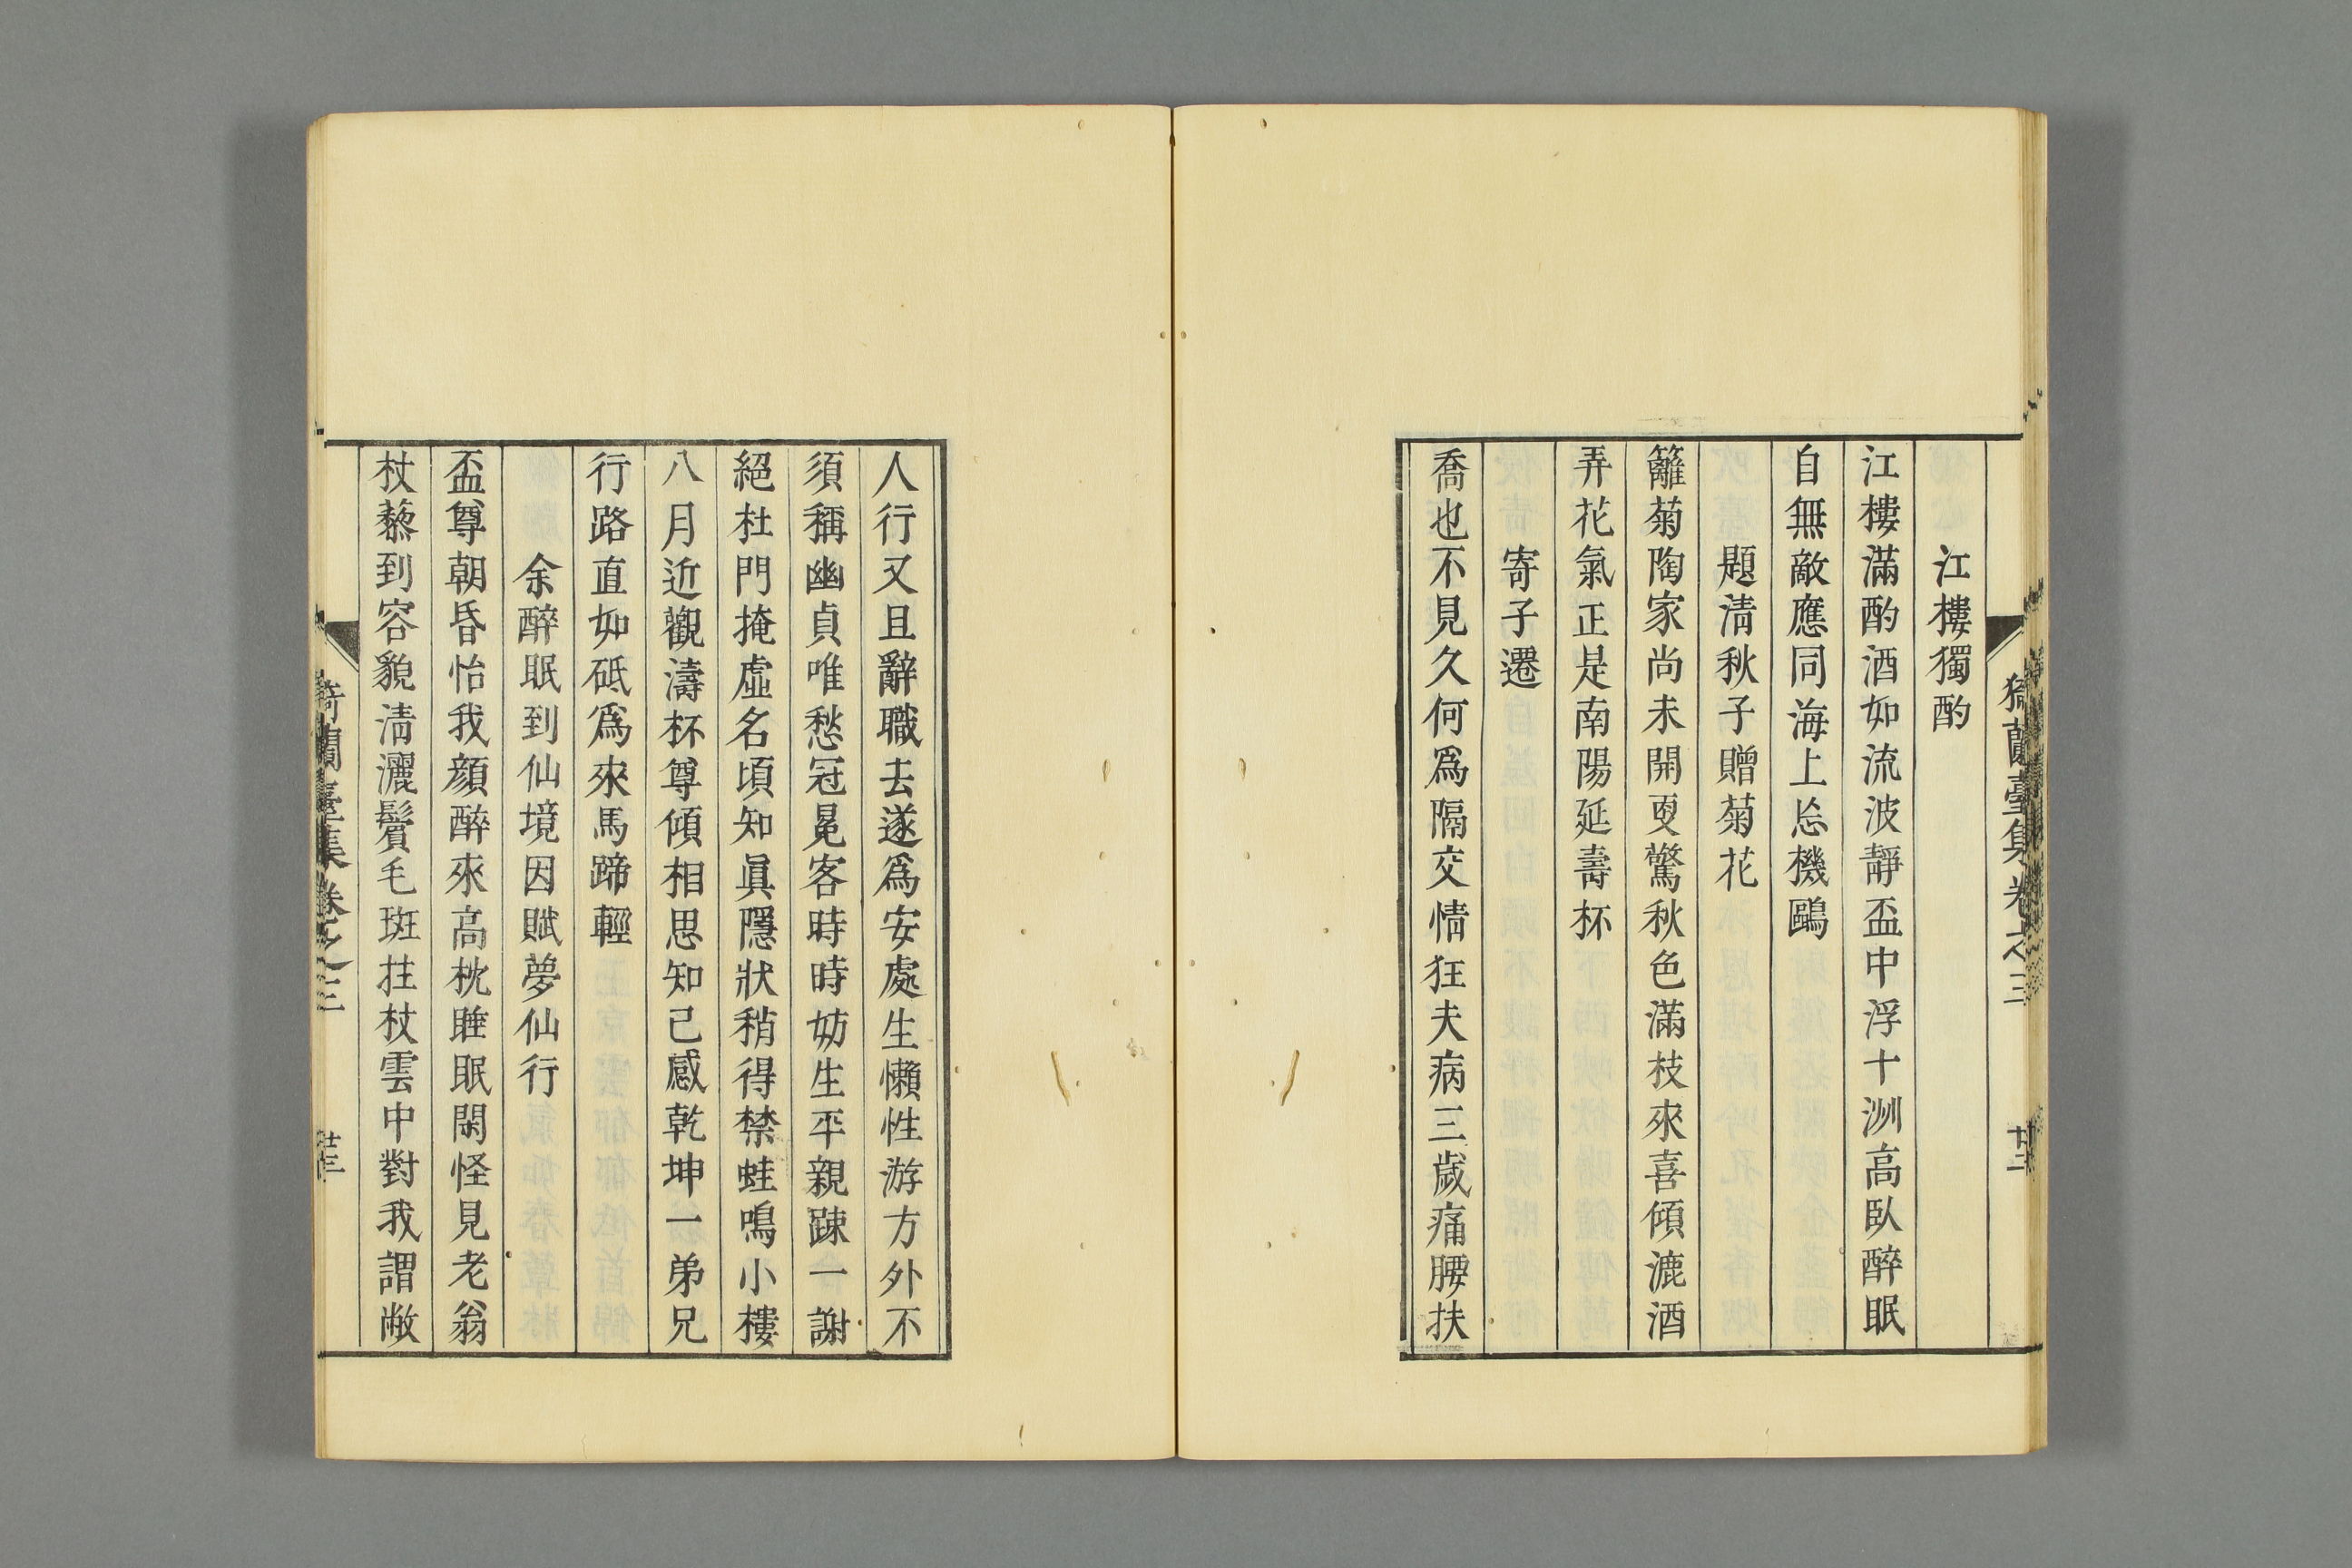 猗蘭臺集卷之三
廿二
江樓獨酌
江樓滿酌酒如流波靜盃中浮十洲高臥醉眠
自無敵應同海上忘機鷗
題淸秋子贈菊花
籬菊陶家尚未開更驚秋色滿枝來喜傾漉酒
弄花氣正是南陽延壽杯
寄子遷
喬也不見久何爲隔交情狂夫病三歲痛腰扶
人行又且辭職去遂爲安處生懶性游方外不
須稱幽貞唯愁冠冕客時時妨生平親踈一謝
絕杜門掩虛名頃知眞隱狀稍得禁蛙鳴小樓
八月近觀濤杯尊傾相思知己感乾坤一弟兄
行路直如砥爲來馬蹄輕
余醉眠到仙境因賦夢仙行
盃尊朝昏怡我顏醉來高枕睡眠閑怪見老翁
杖藜到容貌淸灑鬢毛斑拄杖雲中對我謂敝
猗蘭臺集卷之三